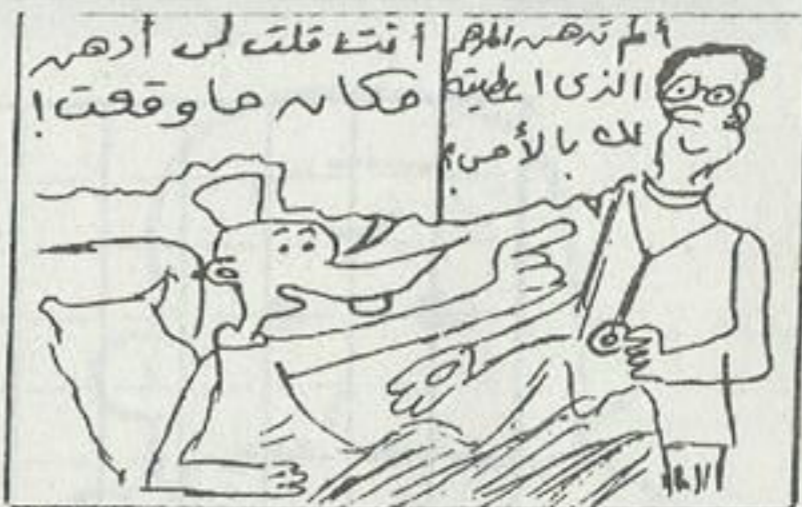 ألم تدهن المرهم
الذى اعطيته
لك بالأمس؟
أنت قلت لى أدهن
مكان ما وقعت!